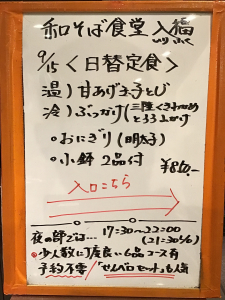 和そば食堂 入福
いり ふく
9/15 〈日替定食〉
温) 甘あげ玉子とじ
冷) ぶっかけ(三陸くきわかめ
ととろろ上かけ
◦おにぎり(明太子)
◦小鉢 2品付 ¥810.-
入口こちら
夜の部では… 17:30〜22:00
(21:30 L.O)
◦少人数に丁度良い6品コース有
予約不要/「せんべロセット」も人気